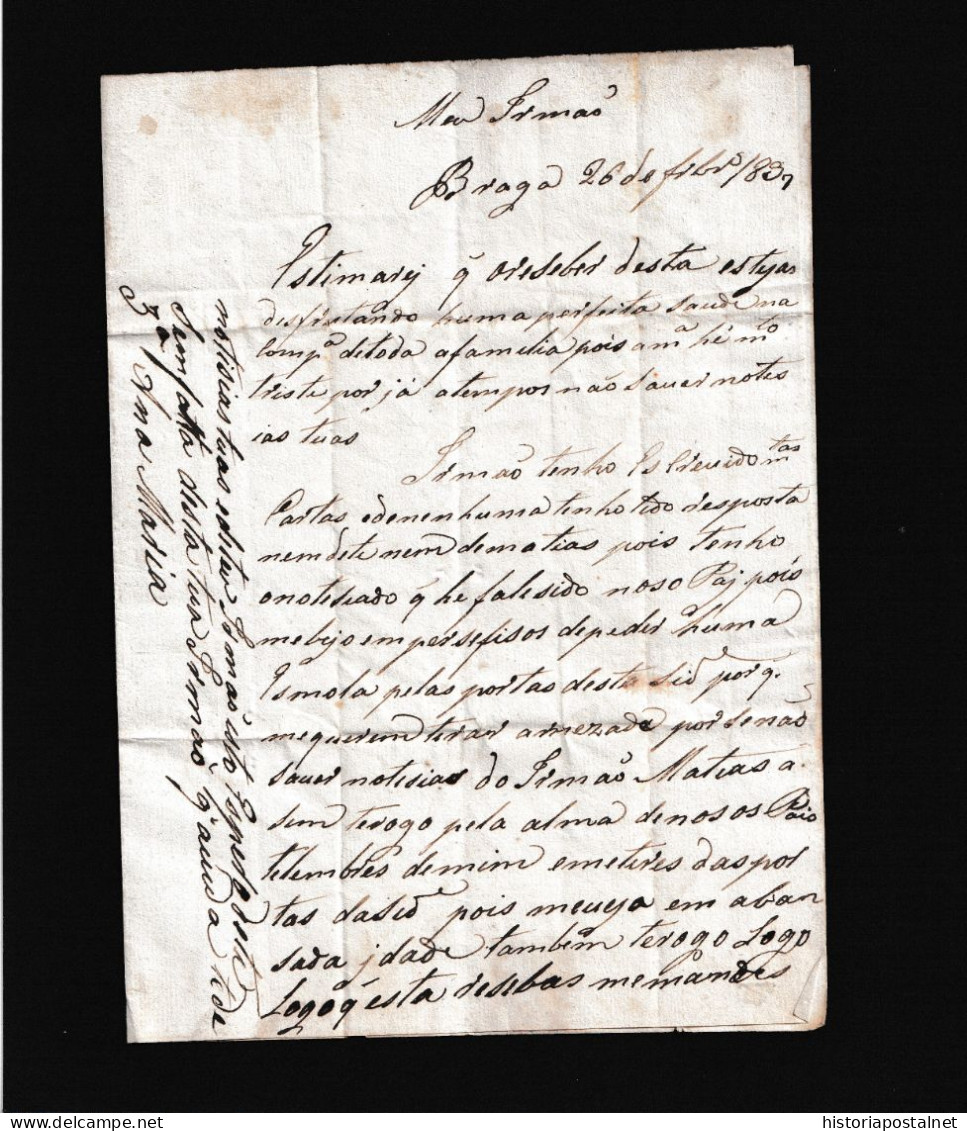 Meu Irmaõ
Braga 26 de fibrº 1837
Estimarej q̃ oreseber desta estejas
desfrutando huma perfeita saude na
Compª detoda afamelia pois am.ª hé m.to
triste por já atempos não sauer notes
ias tuas
Irmaõ tenho Escrevido m.tas
Cartas edenenhuma tenho tido resposta
nem dete nem dematias pois tenho
onotesiado q̃ he falesido noso Paj pois
mebijo em persefisos depedir huma
Esmola pelas portas desta Sid.e porq.
mequerem tirar amezada por senaõ
sauer notesias do Irmaõ Mateas a-
sem terogo pela alma denosos Pais
telembres demim emetires das por
tas da Sid.e pois meveja em aban
sada jdade tambem terogo Logo
Logo q̃ esta resebas memandes
notisias tuas edeteu Irmaõ isto Espero deti
Sem falta desta tua Irmaõ q̃
Anna Maria
historiapostalnet